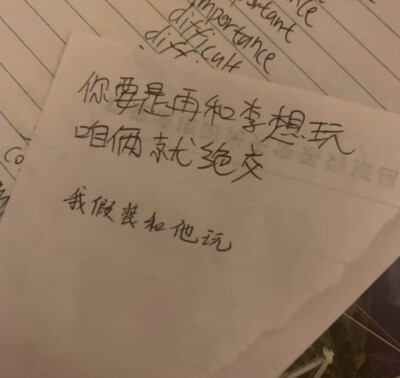 important
importance
difficult
diff
你要是再和李想玩
咱俩就绝交
我假装和他玩